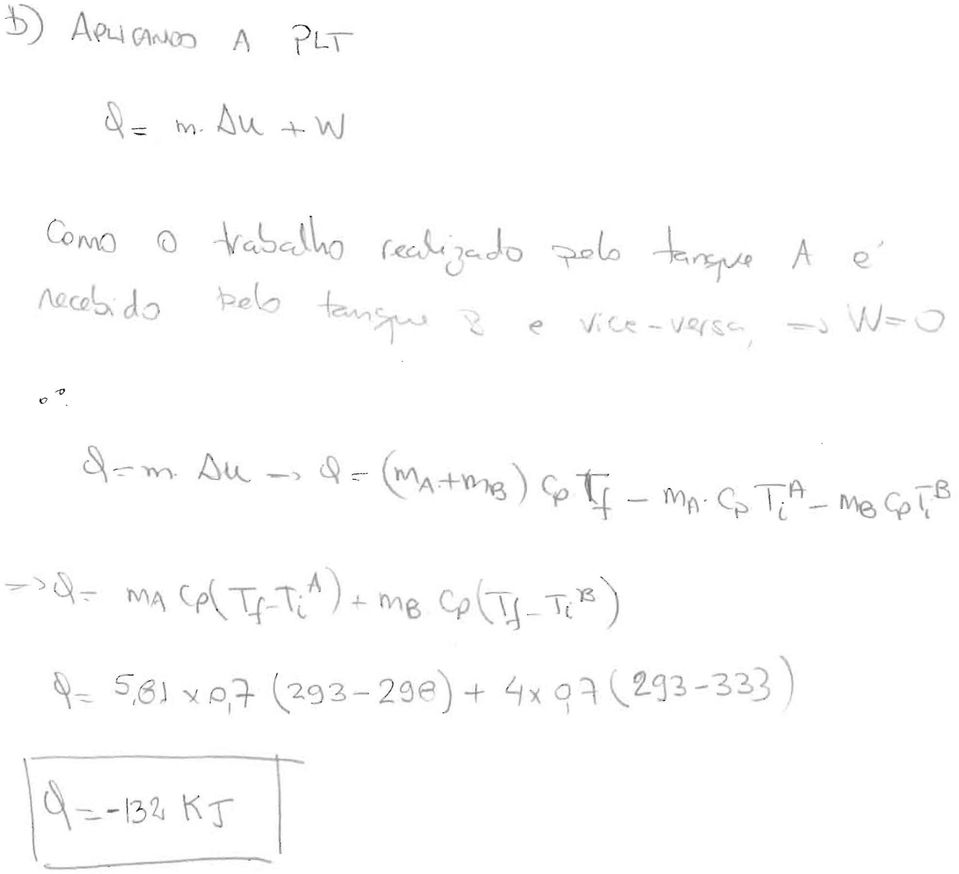 b) APLICANDO A PLT
Q = m. Δu + W
Como o trabalho realizado pelo tanque A é
recebido pelo tanque B e vice-versa, => W=0
∴
Q = m. Δu -> Q = (mA+mB) Cp Tf - mA. Cp Ti^A - mB Cp Ti^B
=> Q = mA Cp(Tf-Ti^A) + mB. Cp(Tf-Ti^B)
Q = 5,81 x 0,7 (293-298) + 4x 0,7 (293-333)
Q = -132 KJ